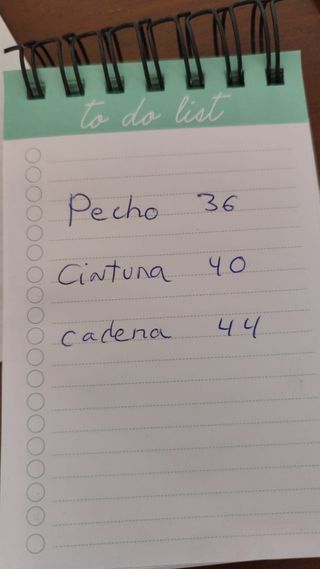 to do list
Pecho 36
Cintura 40
cadera 44